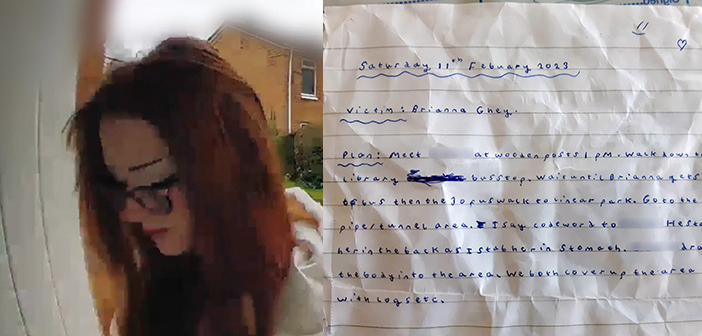 Saturday 11th Febuary 2023
Victim: Brianna Ghey.
Plan: Meet at wooden posts 1 PM. Walk down to
library bus stop. Wait until Brianna gets
of bus then the 3 of us walk to linear park. Go to the
pipe/tunnel area. I say codeword to He sta
her in the back as I stab her in stomach. dra
the body into the area. We both cover up the area
with logs etc.